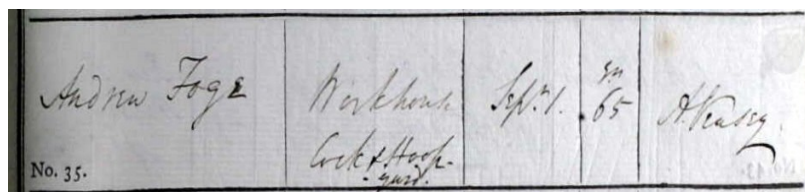 Andrew Foge
No. 35.
Workhouse
Cock & Hoop-
yard.
Sept. 1.
yrs
65